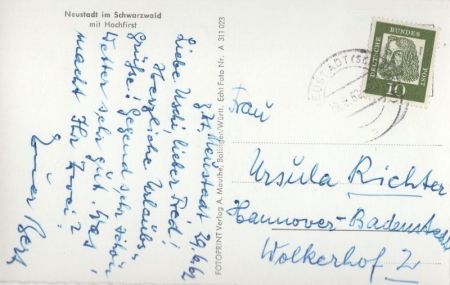 Neustadt im Schwarzwald
mit Hochfirst
z.Zt. Neustadt 29.6.62
Liebe Uschi, lieber Fred!
Herzliche Urlaubs-
grüße! Gegend sehr schön
Wetter sehr gut. Was
macht Ihr Zwei?
Euer Bert
FOTOPRINT Verlag A. Mauthe, Balingen/Württ. Echt Foto Nr. A 311 023
DEUTSCHE BUNDESPOST
10
Frau
Ursula Richter
Hannover-Badenstedt
Wolkerhof 2